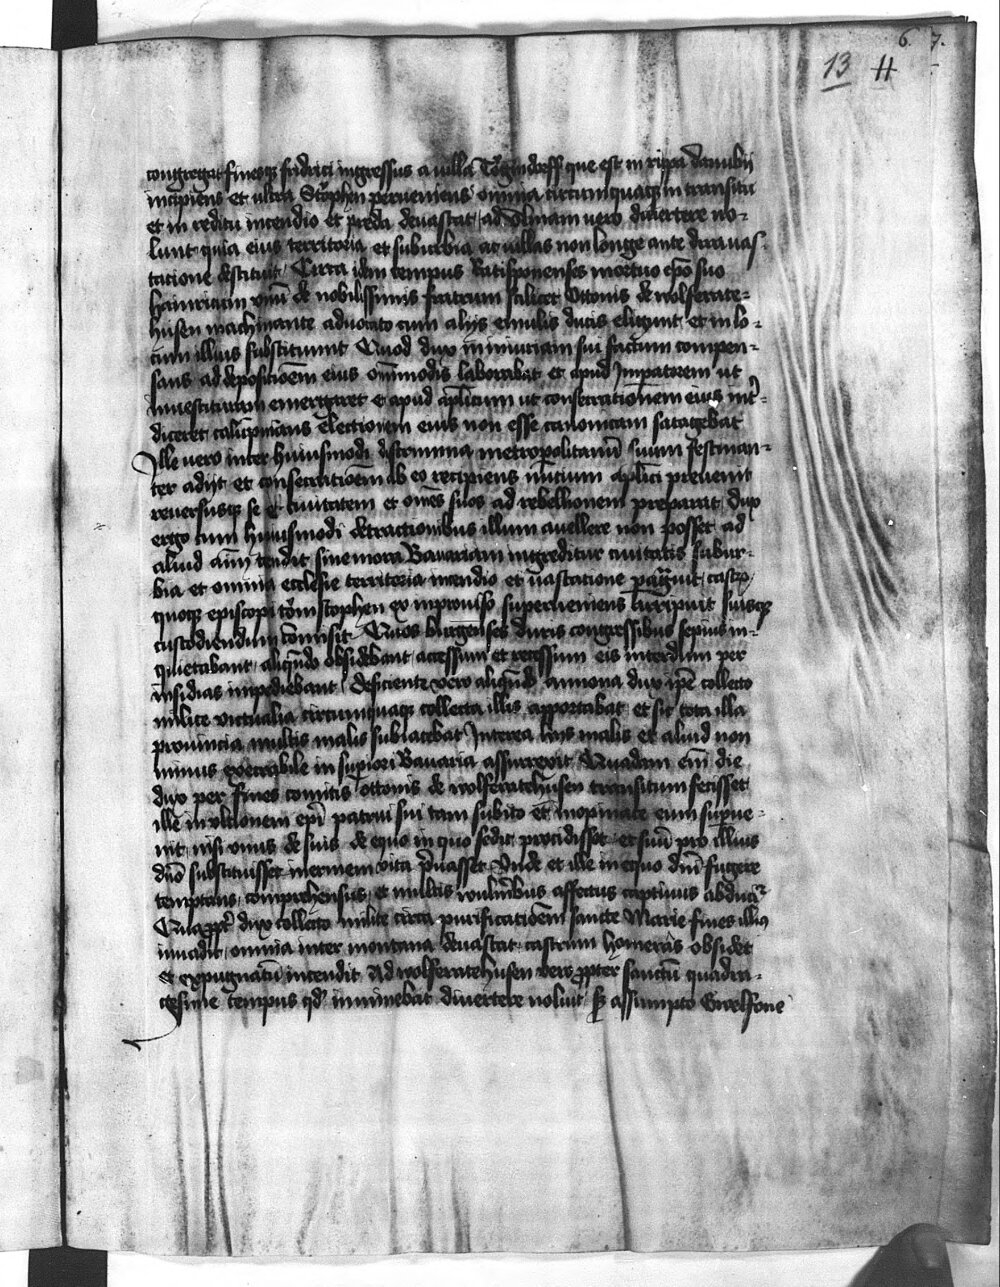 6. 7.
13 #
congregat finesq; fridrici ingressus a villa Togindorff que est in rippa danubij
incipiens et ultra Stophen perveniens omnia circumquaq; in transitu
et in reditu incendio et preda devastat ad Ulmam vero divertere no-
lunt quia eius territoria et suburbia ac villas non longe ante devas-
tatione destituit Circa idem tempus Ratisponenses mortuo epo suo
hainricum unu de nobilissimis fratrum scilicet Ottonis de wolferate-
husen machinante advocato cum alijs emulis ducis eligunt et in lo-
cum illius substituunt Quod dux in iniuriam sui factum compen-
sans ad depositioem eius omimodis laborabat et apud Impatorem ut
investituram emergaret et apud aplicum ut consecrationem eius int-
diceret calupnians electionem eius non esse canonicam satagebat
Ille vero inter huiusmodi discrimina metropolitanu suum festinan-
ter adijt et consecratioem ab eo recipiens nuncium aplici prevenit
reversusq; se et civitatem et omes suos ad rebellionem preparat dux
ergo cum huiusmodi detractionibus illum avellere non posset ad
aliud aim tendit sine mora Bavariam ingreditur civitatis subur-
bia et omnia ecclesie territoria incendio et vastatione pagravit castrq;
quoq; episcopi tom stophen ex inproviso superveniens surripuit suisq;
custodiendum comisit Quos burgenses duris congressibus sepius in-
quietabant aliqndo obsidebant accessum et recessum eis interdum per
insidias impediebant deficiente vero aliqndo annona dux ipe collecto
milite victualia circumquaq; collecta illis apportabat et sic tota illa
provincia multis malis subiacebat Interea hijs malis et aliud non
minus execrabile in supiori Bavaria assurrexit Quadam eni die
dux per fines comitis Ottonis de wolferatehusen transitum fecisset
ille in ultionem epi patrui sui tam subito et inopinate eum supve-
nit nisi unus de suis de equo in quo sedit procidisset et suu pro illius
dno substituisset inermem vita pvasset Unde et ille in equo dni fugere
temptans comprehensus et multis vulnibus affectus captivus abducit
Quappt dux collecto milite circa purificatioem sancte Marie fines illius
invadit omnia inter montana devastat castrum homeras obsidet
et expugnatu incendit Ad wolferatehusen vero ppter sanctu quadra-
gesime tempus qd imminebat divertere noluit sz assumpto Gwelfone